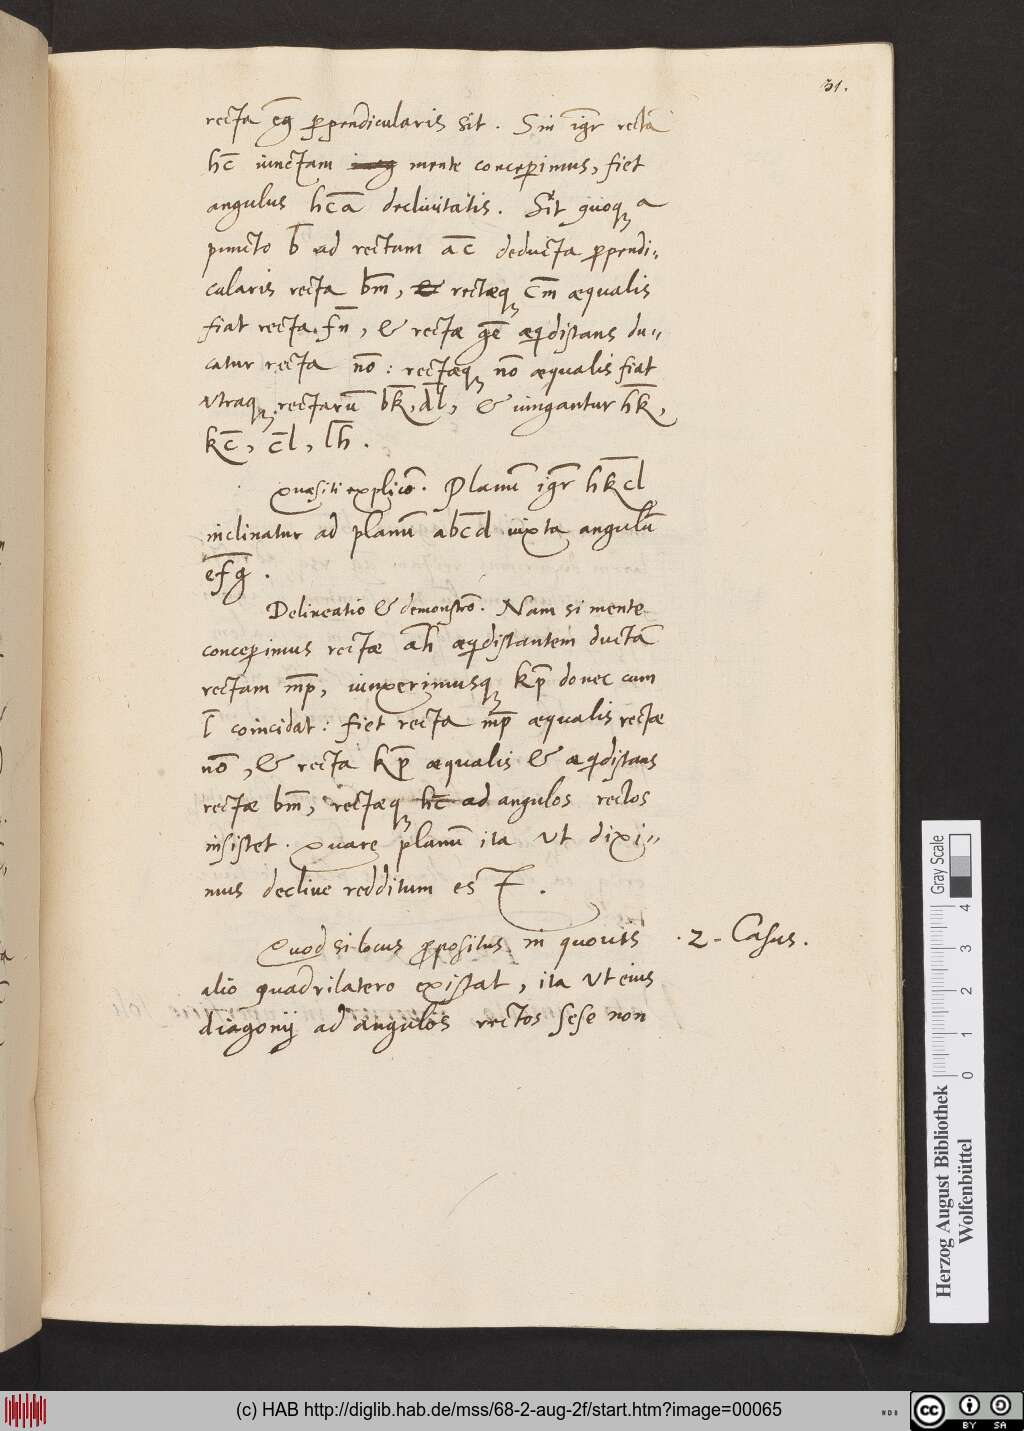 31.
recta e͞g p̱pendicularis sit. Sin igr̄ rectā
h͞c iunctam mente concep̱imus, fiet
angulus h͞c͞a decliuitatis. Sit quoq̨ a
puncto b̄ ad rectam a͞c deducta p̱pendi,,
cularis recta b͞m, & rectæq̨ c͞m æqualis
fiat recta f͞n, & rectæ g͞e æq̱distans du,,
catur recta n͞o: rectæq̨ n͞o æqualis fiat
vtraq̨ rectarū b͞k, d͞l, & iungantur h͞k,
k͞c, c͞l, l͞h.
Quæsiti explicō. Planū igr̄ h͞k͞c͞l
inclinatur ad planū a͞b͞c͞d iuxta angulū
e͞f͞g.
Delineatio & demonstrō. Nam si mente
concep̱imus rectæ a͞h æq̱distantem ductā
rectam m͞p, iunxerimusq̨ k͞p donec cum
l̄ coincidat: fiet recta m͞p æqualis rectæ
n͞o, & recta k͞p æqualis & æq̱distans
rectæ b͞m, rectæq̨ h͞c ad angulos rectos
insistet. Quare planū ita vt dixi,,
mus decliue redditum est.
Quod si locus p̱positus in quouis
alio quadrilatero existat, ita vt eius
diagonij ad angulos rectos sese non
.2. Casus.
Gray Scale
0 1 2 3 4
Herzog August Bibliothek
Wolfenbüttel
(c) HAB http://diglib.hab.de/mss/68-2-aug-2f/start.htm?image=00065
NDB
cc
BY SA